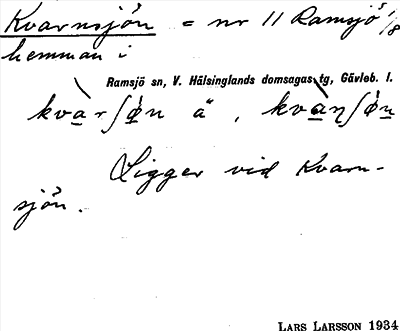 Kvarnsjön = nr 11 Ramsjö 1/8
hemman i
Ramsjö sn, V. Hälsinglands domsagas tg, Gävleb. l.
kvarʃø̀n ä, kvàɳʃøn
Ligger vid Kvarn-
sjön.
LARS LARSSON 1934